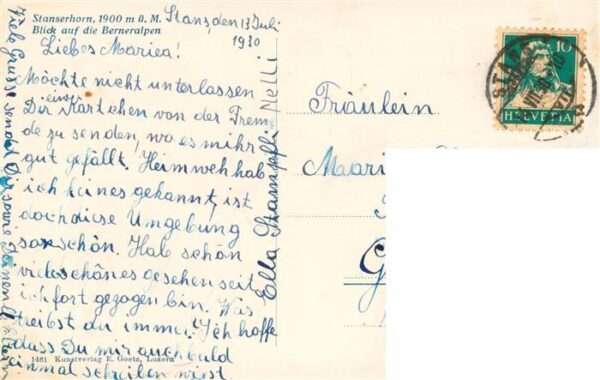 Stanserhorn, 1900 m ü. M.
Blick auf die Berneralpen
Stans, den 13 Juli
1930
Liebes Mariea!
Möchte nicht unterlassen
Dir ein Kärtchen von der Frem
de zu senden, wo es mihr
gut gefällt. Heimweh hab
ich keines gekannt, ist
doch diese Umgebung
so schön. Hab schön
vieles schönes gesehen seit
ich fort gezogen bin. Was
treibst du immer? Ich hoffe
dass Du mir auch bald
einmal schreiben wirst.
Viele Grüsse sendet Dir sowie Deinen Eltern
Ella Stampfli Nelli
1461 Kunstverlag E. Goetz, Luzern
Fräulein
Marie
G
10
HELVETIA
STANS